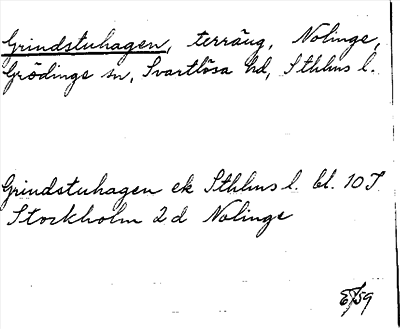 Grindstuhagen, terräng, Nolinge,
Grödinge sn, Svartlösa hd, Sthlms l.
Grindstuhagen ek Sthlms l. bl. 10 I
Stockholm 2 d Nolinge